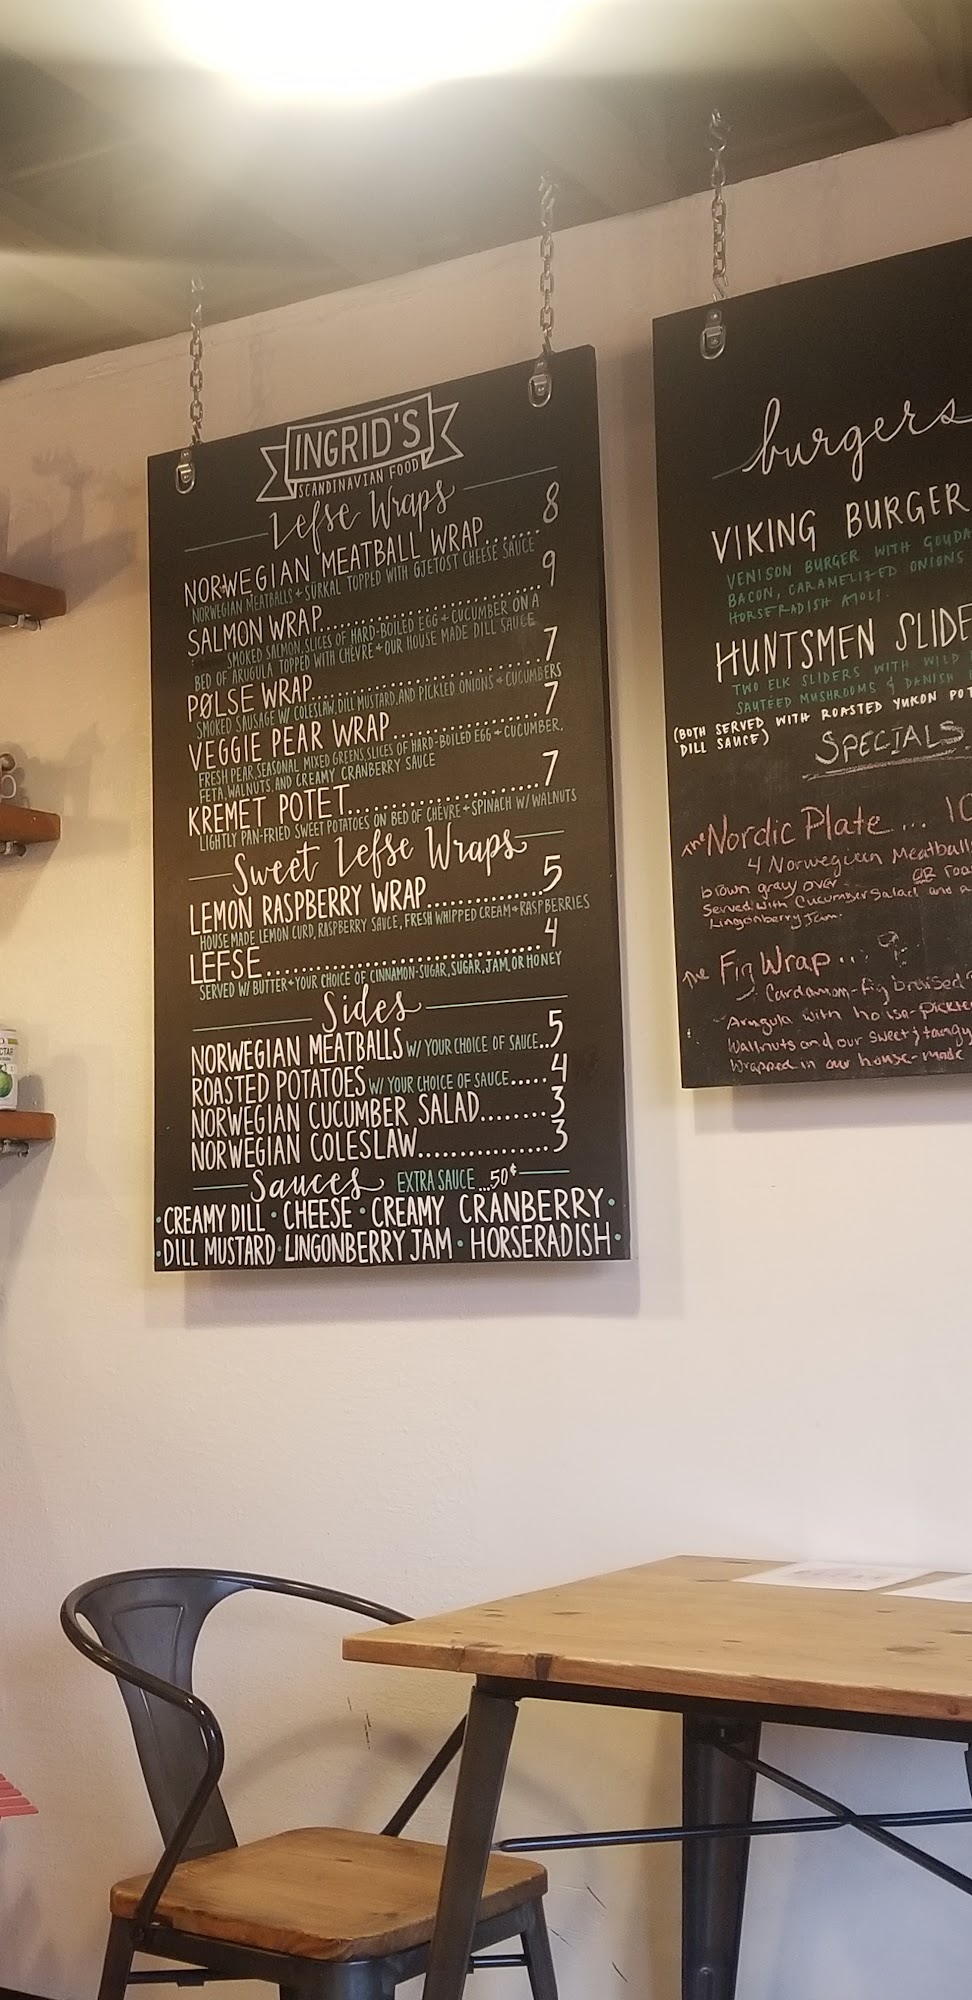 INGRID'S
SCANDINAVIAN FOOD
Lefse Wraps
NORWEGIAN MEATBALL WRAP.......8
NORWEGIAN MEATBALLS + SÜRKAL TOPPED WITH GJETOST CHEESE SAUCE
SALMON WRAP..............................9
SMOKED SALMON, SLICES OF HARD-BOILED EGG + CUCUMBER ON A
BED OF ARUGULA TOPPED WITH CHÈVRE + OUR HOUSE MADE DILL SAUCE
PØLSE WRAP..............................7
SMOKED SAUSAGE W/ COLESLAW, DILL MUSTARD, AND PICKLED ONIONS + CUCUMBERS
VEGGIE PEAR WRAP....................7
FRESH PEAR, SEASONAL MIXED GREENS, SLICES OF HARD-BOILED EGG + CUCUMBER,
FETA, WALNUTS, AND CREAMY CRANBERRY SAUCE
KREMET POTET.........................7
LIGHTLY PAN-FRIED SWEET POTATOES ON BED OF CHÈVRE + SPINACH W/ WALNUTS
Sweet Lefse Wraps
LEMON RASPBERRY WRAP...............5
HOUSE MADE LEMON CURD, RASPBERRY SAUCE, FRESH WHIPPED CREAM + RASPBERRIES
LEFSE....................................4
SERVED W/ BUTTER + YOUR CHOICE OF CINNAMON-SUGAR, SUGAR, JAM, OR HONEY
Sides
NORWEGIAN MEATBALLS W/ YOUR CHOICE OF SAUCE..5
ROASTED POTATOES W/ YOUR CHOICE OF SAUCE.....4
NORWEGIAN CUCUMBER SALAD........3
NORWEGIAN COLESLAW...............3
Sauces EXTRA SAUCE...50¢
• CREAMY DILL • CHEESE • CREAMY CRANBERRY •
• DILL MUSTARD • LINGONBERRY JAM • HORSERADISH •
burgers
VIKING BURGER
VENISON BURGER WITH GOUDA
BACON, CARAMELIZED ONIONS
HORSERADISH AIOLI.
HUNTSMEN SLIDE
TWO ELK SLIDERS WITH WILD
SAUTÉED MUSHROOMS & DANISH
(BOTH SERVED WITH ROASTED YUKON POT
DILL SAUCE)
SPECIALS
The Nordic Plate ... 10
4 Norwegian Meatballs
brown gravy over OR roa
Served with Cucumber Salad and
Lingonberry Jam.
The Fig Wrap ... 9
Cardamom-fig braised
Arugula with house-pickle
Wallnuts and our sweet & tangy
Wrapped in our house-made